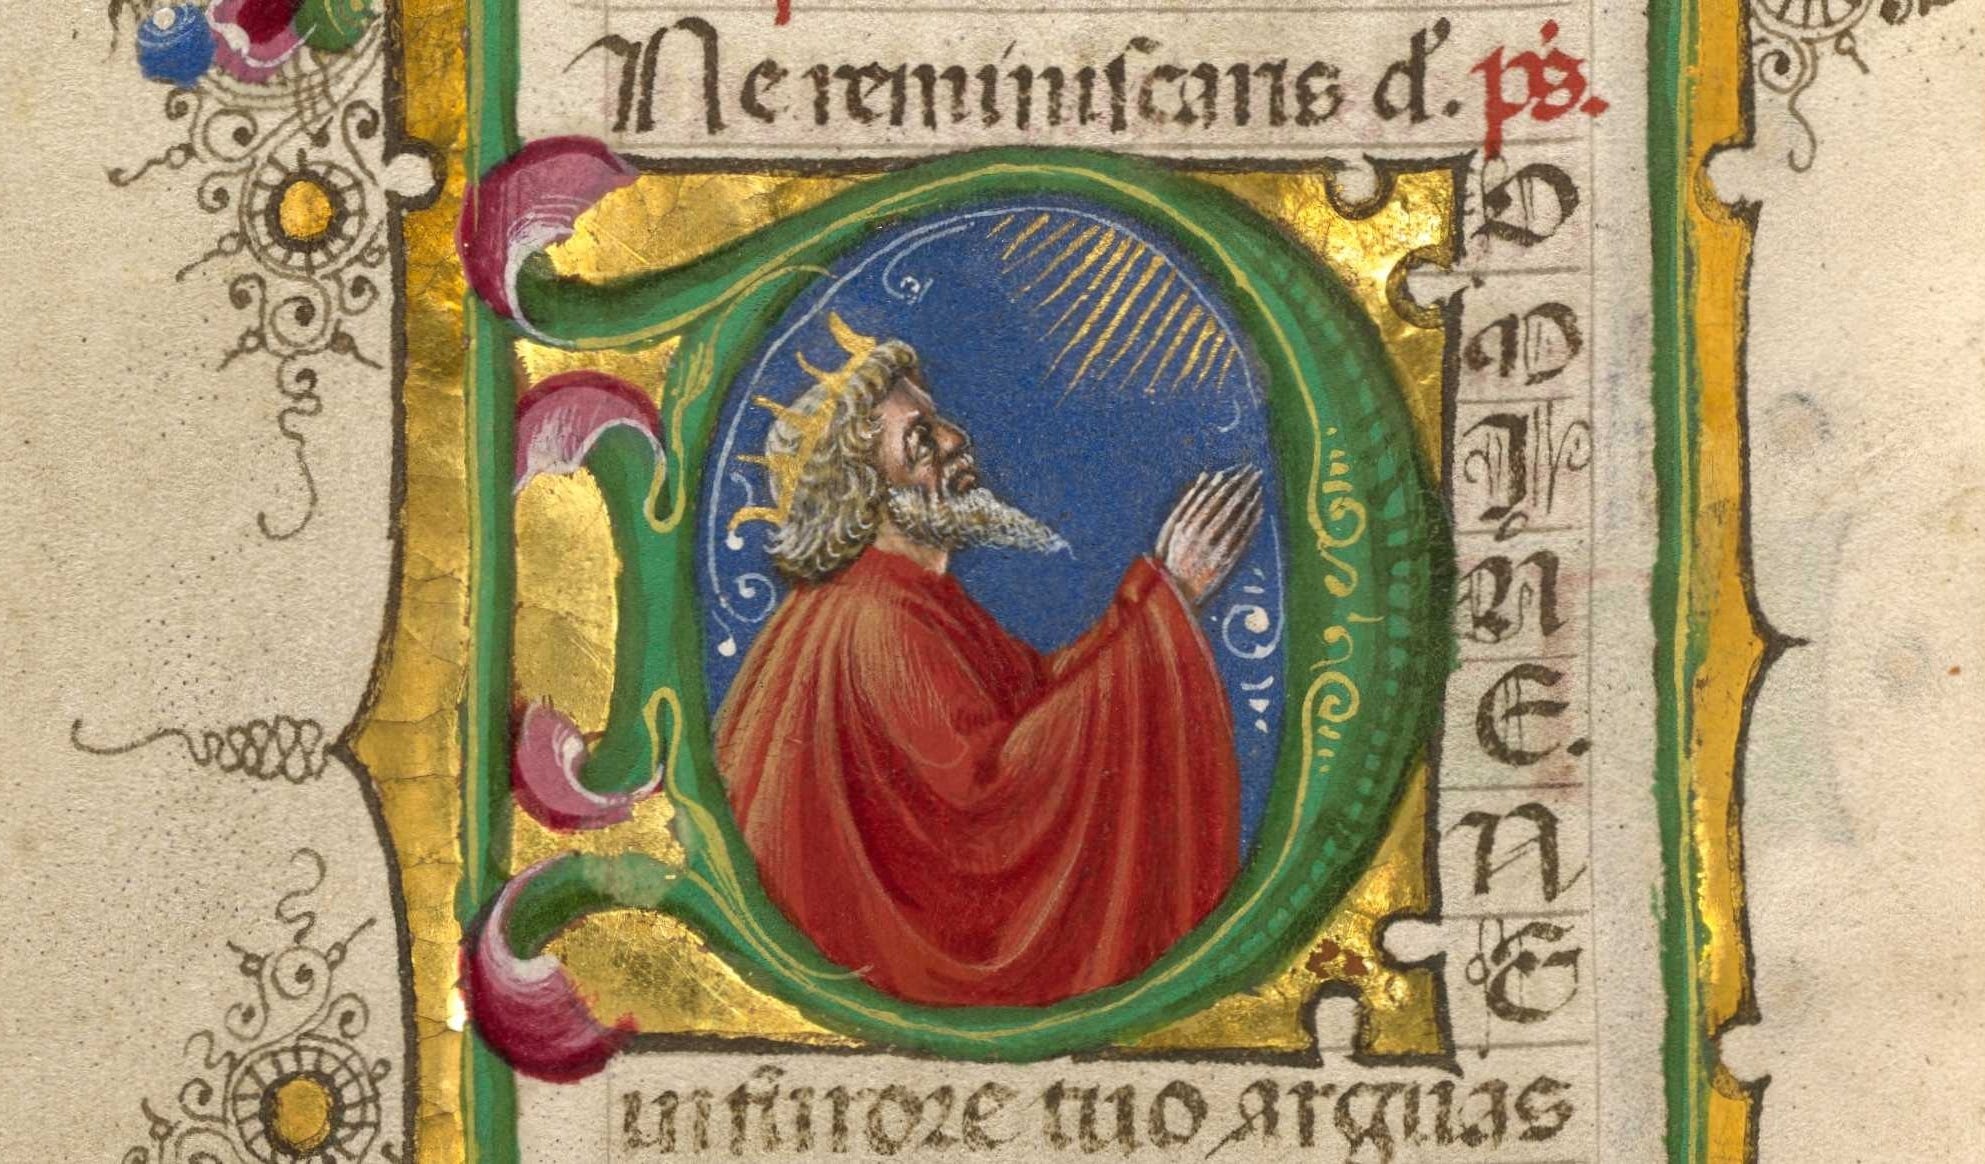 Ne reminiſcaris d'. ps.
DOMINE. NE
in furore tuo arguas